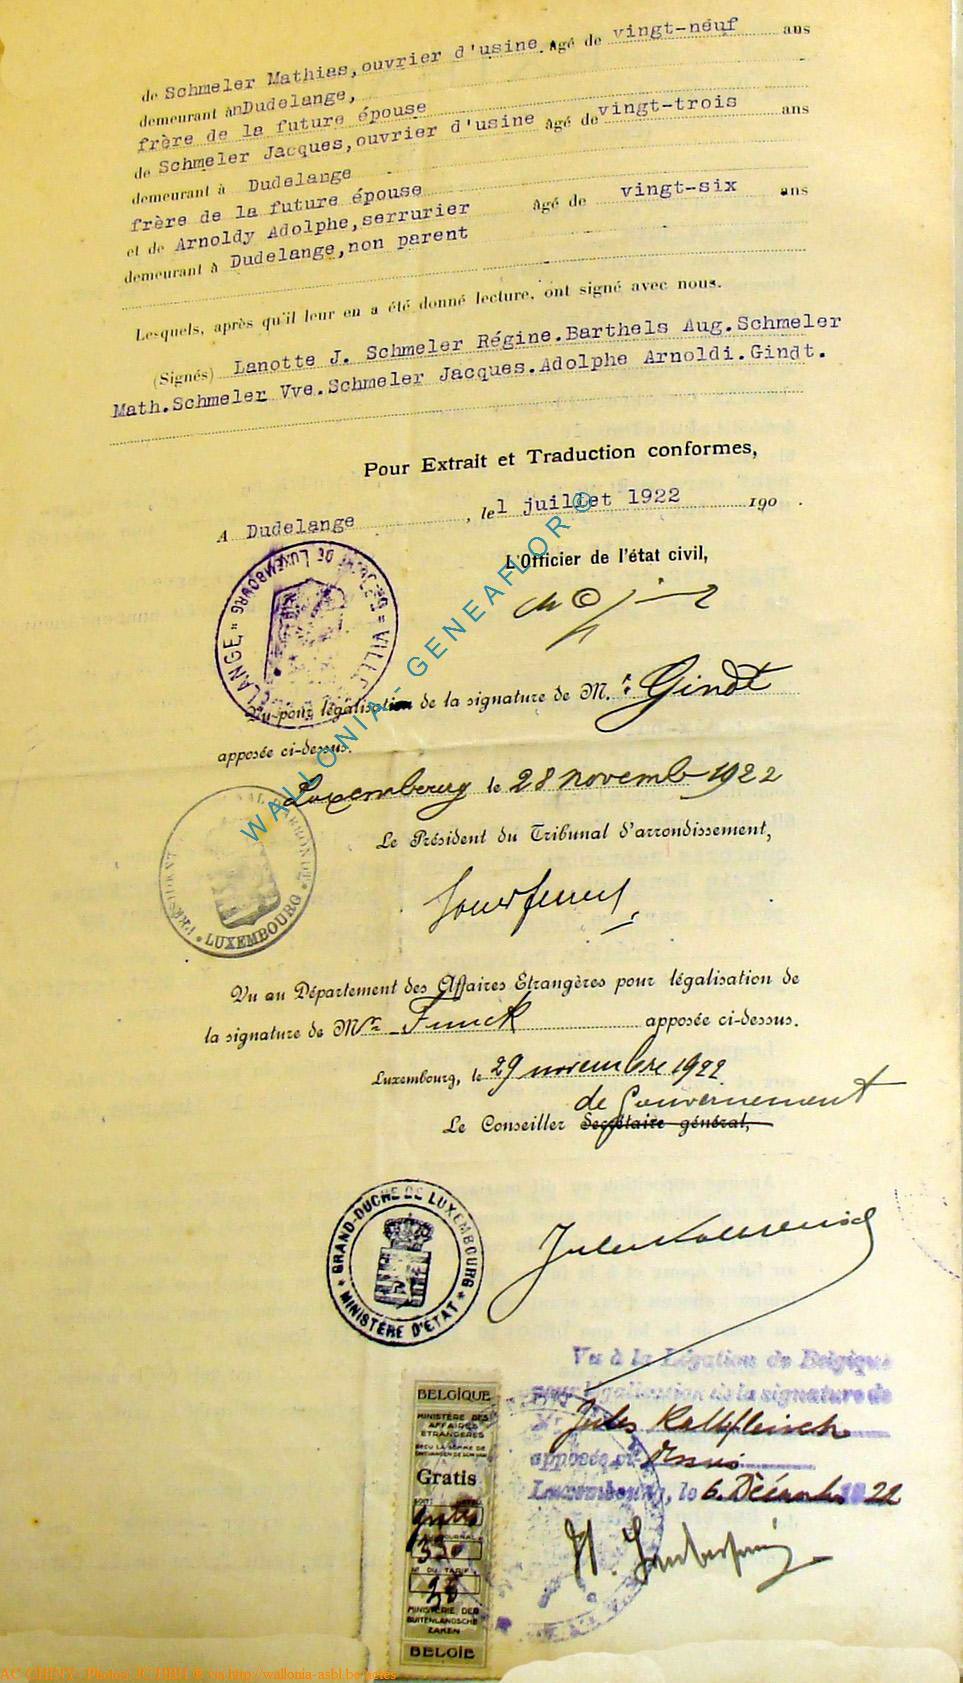 de Schmeler Mathias, ouvrier d'usine âgé de vingt-neuf ans
demeurant à Dudelange,
frère de la future épouse
de Schmeler Jacques, ouvrier d'usine âgé de vingt-trois ans
demeurant à Dudelange
frère de la future épouse
et de Arnoldy Adolphe, serrurier âgé de vingt-six ans
demeurant à Dudelange, non parent
Lesquels, après qu'il leur en a été donné lecture, ont signé avec nous.
(Signés) Lanotte J. Schmeler Régine. Barthels Aug. Schmeler
Math. Schmeler Vve. Schmeler Jacques. Adolphe Arnoldi. Gindt.
Pour Extrait et Traduction conformes,
A Dudelange, le 1 juillet 1922 190 .
L'Officier de l'état civil,
GD-DUCHÉ DE LUXEMBOURG = VILLE
Vu pour légalisation de la signature de M. Gindt
apposée ci-dessus.
Luxembourg le 28 novemb 1922
Le Président du Tribunal d'arrondissement,
PRÉSIDENT
LUXEMBOURG
Vu au Département des Affaires Etrangères pour légalisation de
la signature de Mr Funck apposée ci-dessus.
Luxembourg, le 29 novembre 1922
de Gouvernement
Le Conseiller Secrétaire général,
GRAND-DUCHÉ DE LUXEMBOURG
MINISTÈRE D'ÉTAT
Vu à la Légation de Belgique
pour légalisation de la signature de
M Jules Kalbfleisch
apposée ci dessus
Luxembourg, le 6 Décembre 1922
BELGIQUE
MINISTÈRE DES
AFFAIRES
ETRANGÈRES
REÇU LA SOMME DE
Gratis
gratis
330
N° DU TARIF
38
MINISTERIE DER
BUITENLANDSCHE
ZAKEN
BELGIË
WALLONIA - GENEAFLOR ©
©
AC CHINY - Photos: JC HBH © via http://wallonia-asbl.be/actes